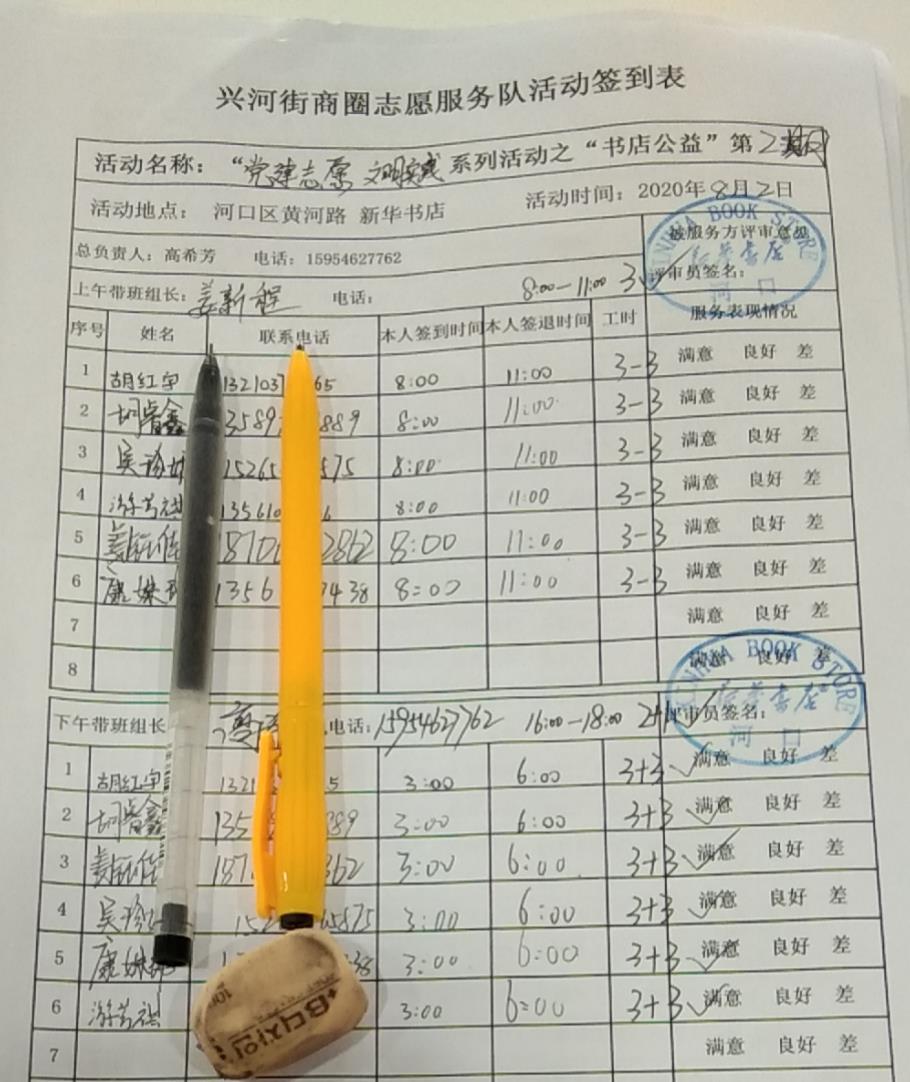 兴河街商圈志愿服务队活动签到表
活动名称：“党建志愿 文明实践系列活动之“书店公益”第2
活动地点： 河口区黄河路 新华书店 活动时间：2020年8月2日
总负责人：高希芳 电话：15954627762 被服务方评审意见
上午带班组长：姜新程 电话： 8:00—11:00 3 评审员签名：
XINHUA BOOK STORE
新华书店
河口
序号 姓名 联系电话 本人签到时间 本人签退时间 工时 服务表现情况
1 胡红宇 1321037 65 8:00 11:00 3-3 满意 良好 差
2 胡睿鑫 13589 889 8:00 11:00 3-3 满意 良好 差
3 吴 15265 875 8:00 11:00 3-3 满意 良好 差
4 游芳祺 135610 6 8:00 11:00 3-3 满意 良好 差
5 姜钰佳 18706 2862 8:00 11:00 3-3 满意 良好 差
6 康姝 1356 7438 8:00 11:00 3-3 满意 良好 差
7 满意 良好 差
8 满意 良好 差
XINHUA BOOK STORE
新华书店
河口
下午带班组长 高 电话：15954627762 16:00—18:00 评审员签名：
1 胡红宇 132 5 3:00 6:00 3+3 ✓满意 良好 差
2 胡睿鑫 135 889 3:00 6:00 3+3 ✓满意 良好 差
3 姜钰佳 187 862 3:00 6:00 3+3 ✓满意 良好 差
4 吴 152 65875 3:00 6:00 3+3 ✓满意 良好 差
5 康姝 1 438 3:00 6:00 3+3 ✓满意 良好 差
6 游芳祺 3:00 6:00 3+3 ✓满意 良好 差
7 满意 良好 差